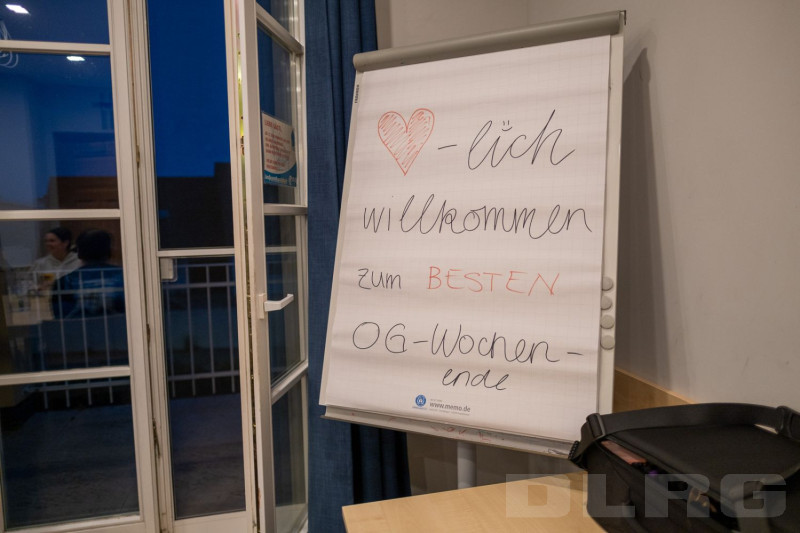 -lich
willkommen
zum BESTEN
OG-Wochen-
ende
www.memo.de
DLRG